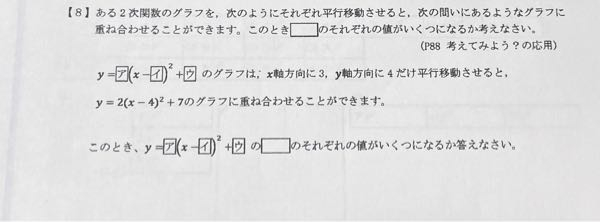 【８】ある２次関数のグラフを，次のようにそれぞれ平行移動させると，次の問いにあるようなグラフに
重ね合わせることができます。このとき□のそれぞれの値がいくつになるか考えなさい。
(P88 考えてみよう？の応用)
y＝ア(x－イ)²＋ウ のグラフは，x軸方向に 3，y軸方向に 4 だけ平行移動させると，
y = 2(x − 4)² + 7のグラフに重ね合わせることができます。
このとき、y＝ア(x－イ)²＋ウ の□のそれぞれの値がいくつになるか答えなさい。